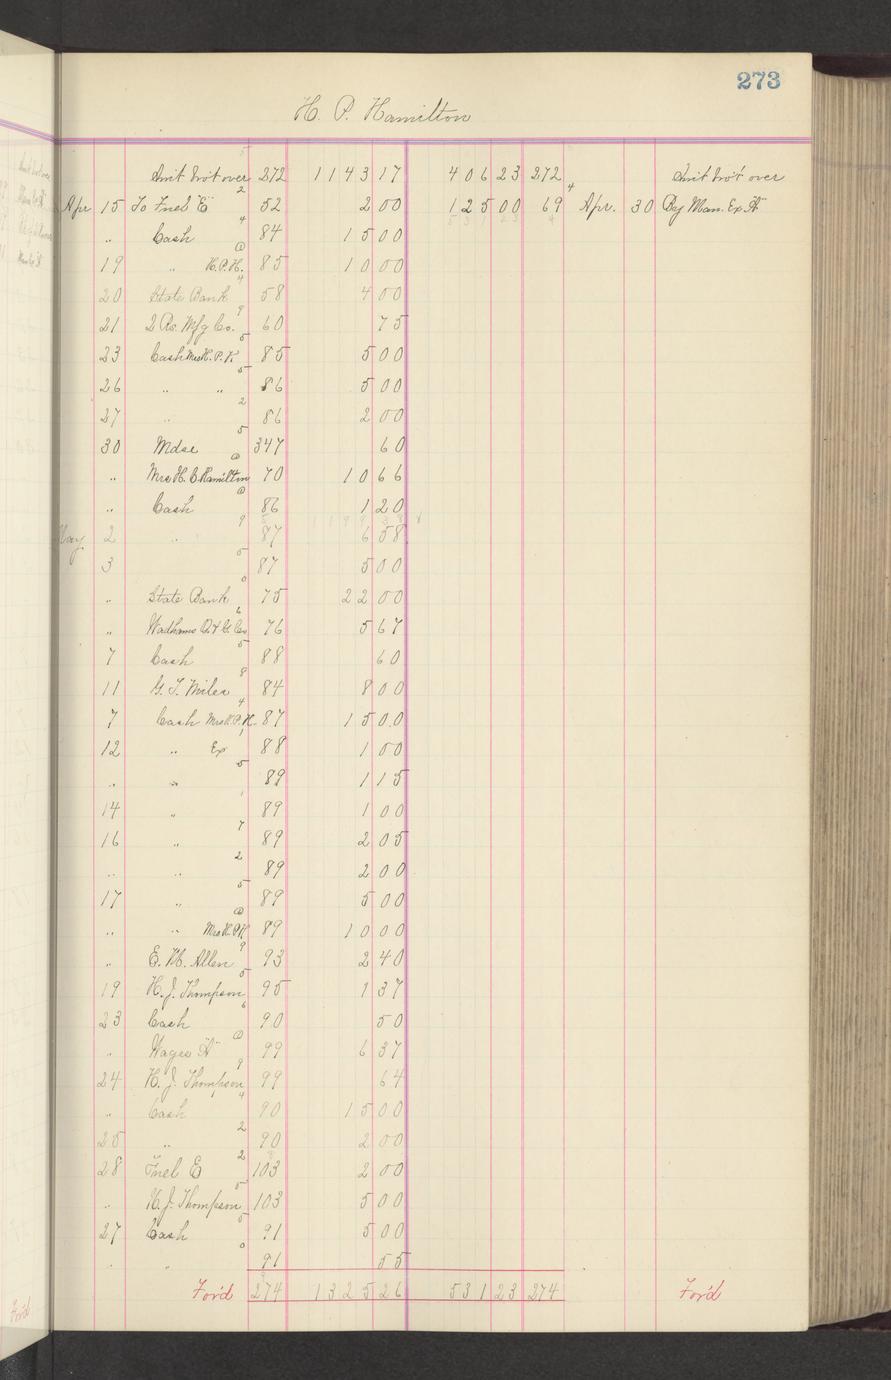 273
H. P. Hamilton
Amt bro't over 272 1143 17 406 23 272 Amt bro't over
Apr 15 To Fuel "E" 52 2 00 125 00 69 Apr. 30 By Man. Ex "A"
" Cash 84 15 00
19 " H.P.H. 85 10 00
20 State Bank 58 4 00
21 2 Rs. Mfg Co. 60 75
23 Cash Mrs H.P.H. 85 5 00
26 " " 86 5 00
27 " 86 2 00
30 Mdse 347 60
" Mrs H. C. Hamilton 70 10 66
" Cash 86 1 20
May 2 " 87 6 58
3 87 5 00
" State Bank 75 22 00
" Wadhams O. & G. Co 76 5 67
7 Cash 88 60
11 G. T. Miles 84 8 00
7 Cash Mrs H.P.H. 87 15 00
12 " Ex 88 1 00
" " 89 1 15
14 " 89 1 00
16 " 89 2 05
" " 89 2 00
17 " 89 5 00
" " Mrs H.P.H. 89 10 00
" E. H. Allen 93 2 40
19 H. J. Thompson 95 1 37
23 Cash 90 50
" Wages "A" 99 6 37
24 H. J. Thompson 99 64
" Cash 90 15 00
25 " 90 2 00
28 Fuel E 103 2 00
" H. J. Thompson 103 5 00
27 Cash 91 5 00
" " 91 55
For'd 274 1325 26 531 23 274 For'd